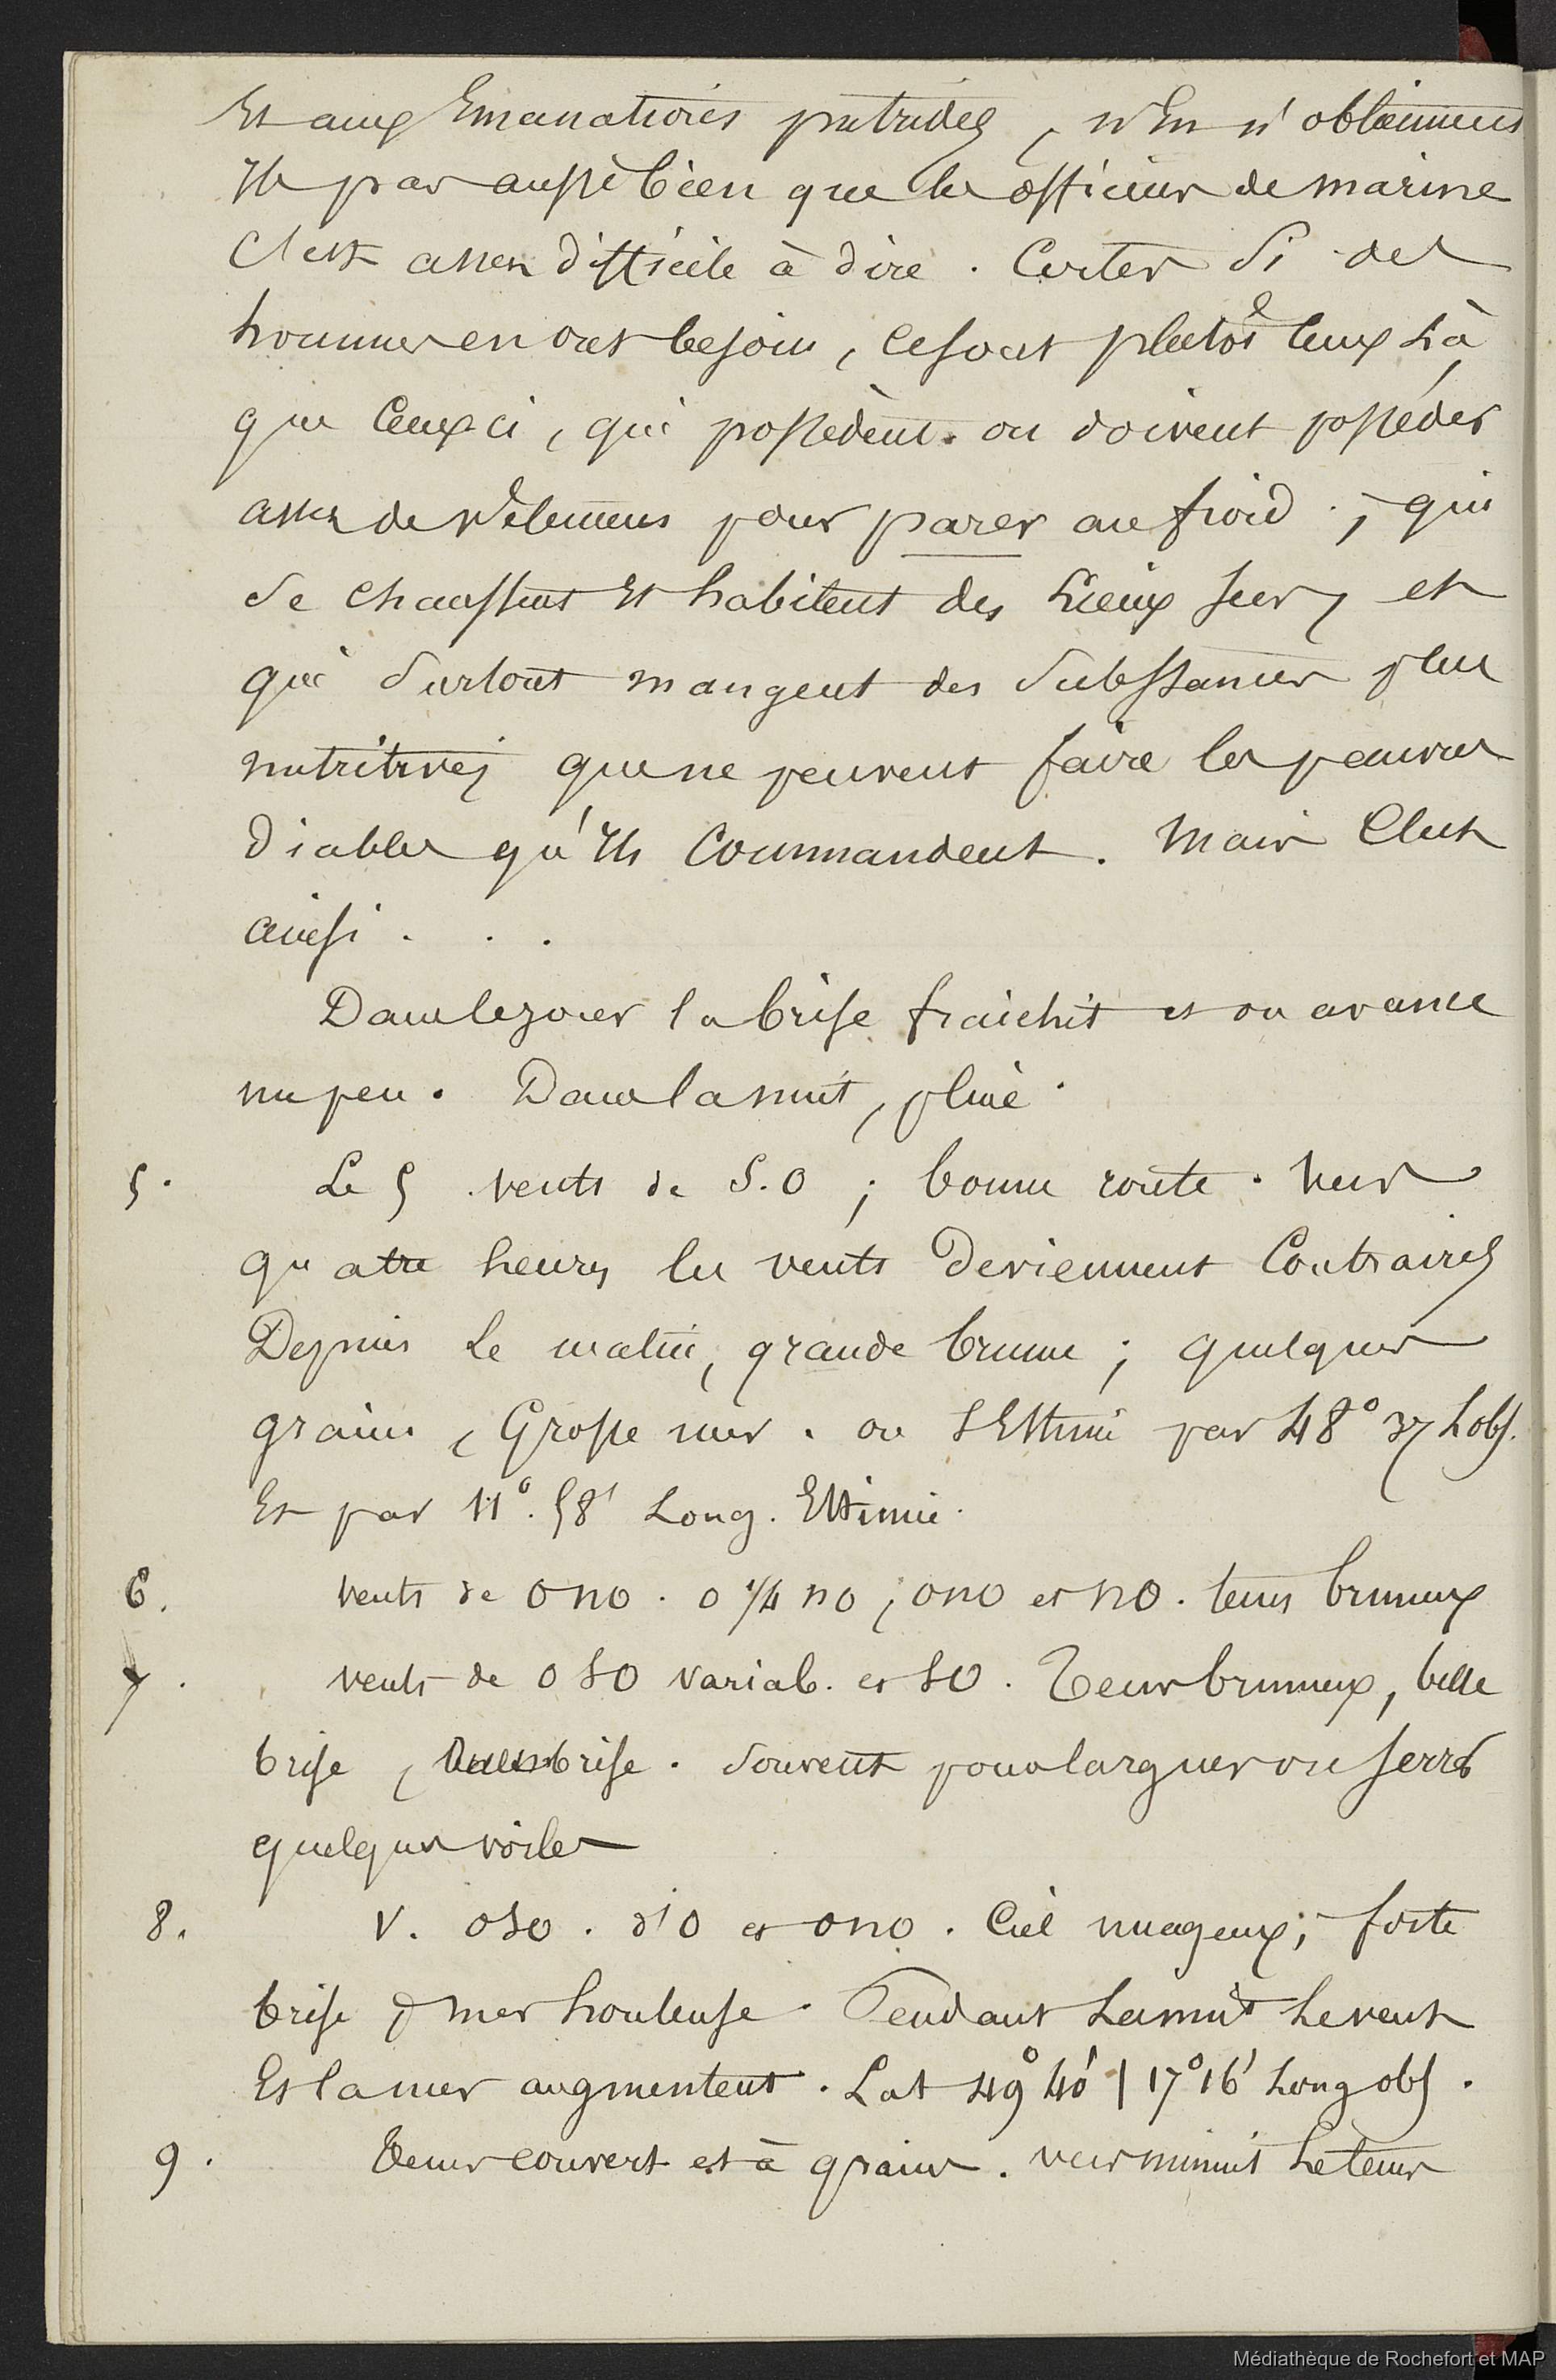 Et aux Emanations putrides, n'En n'obtiennent
Ils pas aussi bien que les officiers de marine
C'est assez difficile à dire. Certes Si des
hommes en ont besoin, ce sont plutôt ceux là
que Ceux ci, qui possèdent ou doivent posséder
assez de vêtemens pour parer au froid ; qui
se chauffent Et habitent des Lieux secs, et
qui surtout mangent des substances plus
nutritives que ne peuvent faire les pauvres
diables qu'Ils Commandent. Mais C'est
ainsi . . .
Dans le jour la brise fraichit et on avance
un peu. Dans la nuit, pluie.
5. Le 5 vents de S.O ; bonne route. Vers
quatre heures les vents deviennent Contraires
Depuis Le matin, grande brume ; quelques
grains, Grosse mer. on s'Estime par 48° 37 L obs.
Et par 11°. 58' Long. Estimée.
6. Vents de ONO. O 1/4 NO, ONO et NO. tems brumeux
7. vents de OSO variab. et SO. Tems brumeux, belle
brise, brise. Souvent pour larguer ou serrer
quelques voiles
8. V. OSO. d'O et ONO. Ciel nuageux ; forte
brise & mer houleuse. Pendant La nuit Le vent
Et la mer augmentent. Lat 49° 40' | 17° 16' Long obs.
9. Tems couvert et à grains. vers minuit Le tems
Médiathèque de Rochefort et MAP